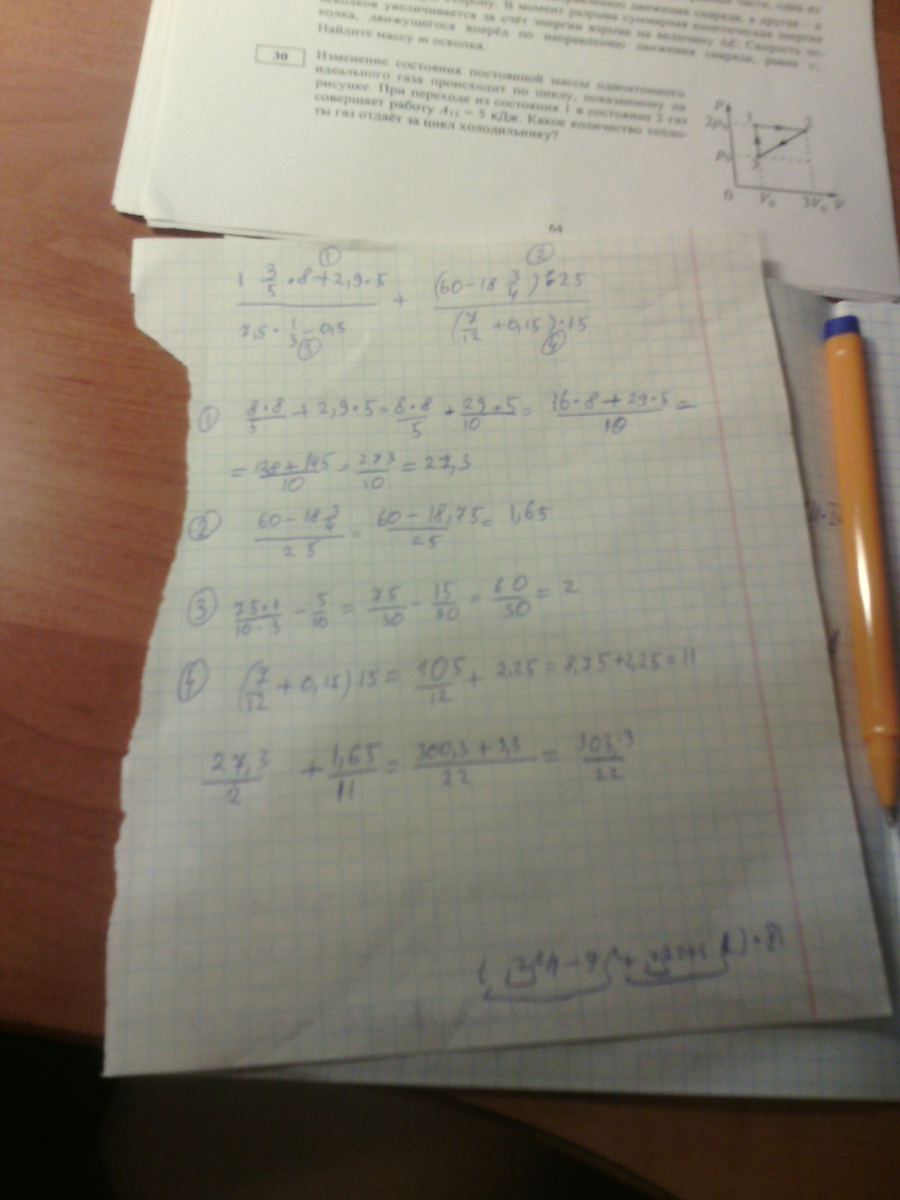 сторону. В момент разрыва суммарная кинетическая энергия
осколков увеличивается за счёт энергии взрыва на величину ΔE. Скорость ос-
колка, движущегося вперёд по направлению движения снаряда, равна
Найдите массу m осколка.
30
Изменение состояния постоянной массы одноатомного
идеального газа происходит по циклу, показанному на
рисунке. При переходе из состояния 1 в состояние 2 газ
совершает работу A₁₂ = 5 кДж. Какое количество тепло-
ты газ отдаёт за цикл холодильнику?
p
2p₀ 1 2
p₀ 3
0 V₀ 3V₀ V
64
① ②
(1 3/5 · 8 + 2,9 · 5)/(7,5 · 1/3 − 0,5) + ((60 − 18 3/4) : 25)/((7/12 + 0,15) · 15)
③ ④
① 8·8/5 + 2,9·5 = 8·8/5 + 29·5/10 = (16·8 + 29·5)/10 =
= (128 + 145)/10 = 273/10 = 27,3
② (60 − 18 3/4)/25 = (60 − 18,75)/25 = 1,65
③ 75·1/10·3 − 5/10 = 75/30 − 15/30 = 60/30 = 2
④ (7/12 + 0,15) 15 = 105/12 + 2,25 = 8,75 + 2,25 = 11
27,3/2 + 1,65/11 = (300,3 + 3,3)/22 = 303,3/22